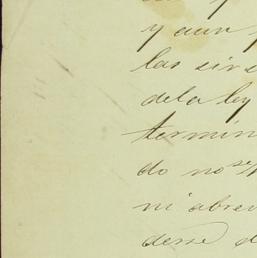 y aun
las sirs
dela ley
termin
do no se
ni abrev
derse d